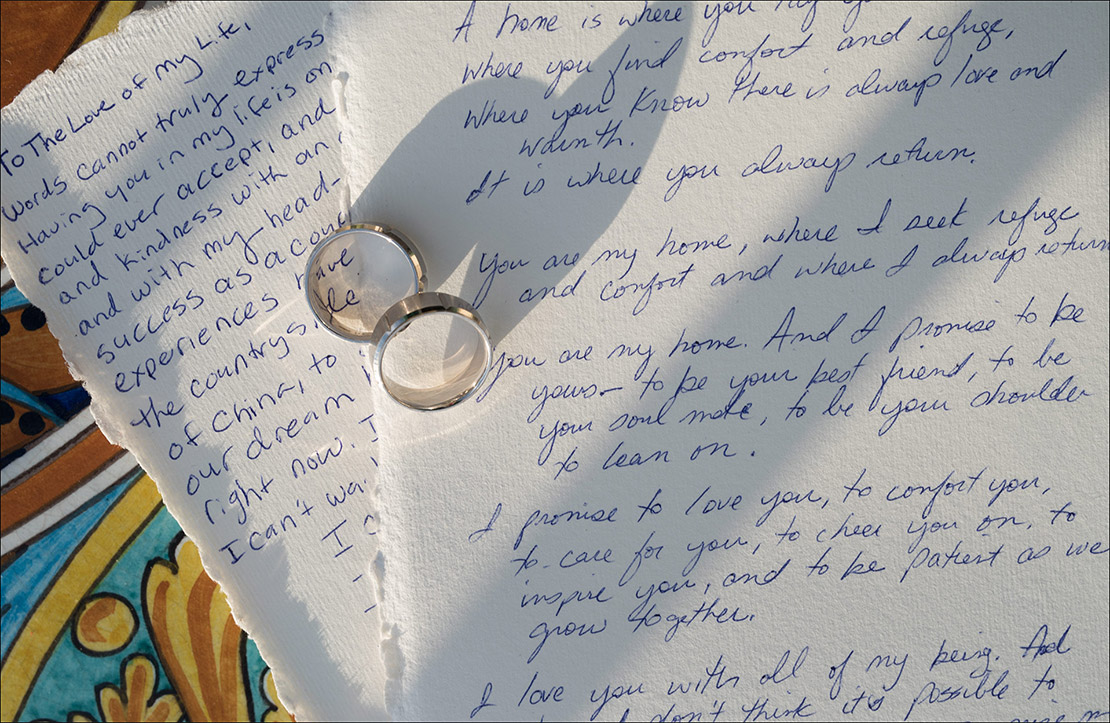 To The Love of my Life,
Words cannot truly express
Having you in my life is an
could ever accept, and
and kindness with an
and with my head-
success as a
experiences
the countryside.
of China, to
our dream
right now. I
I can't
I
A home is where you
where you find comfort and refuge,
where you know there is always love and
warmth.
It is where you always return.
You are my home, where I seek refuge
and comfort and where I always return
You are my home. And I promise to be
yours- to be your best friend, to be
your soul mate, to be your shoulder
to lean on.
I promise to love you, to comfort you,
to care for you, to cheer you on, to
inspire you, and to be patient as we
grow together.
I love you with all of my being. And
I don't think it's possible to